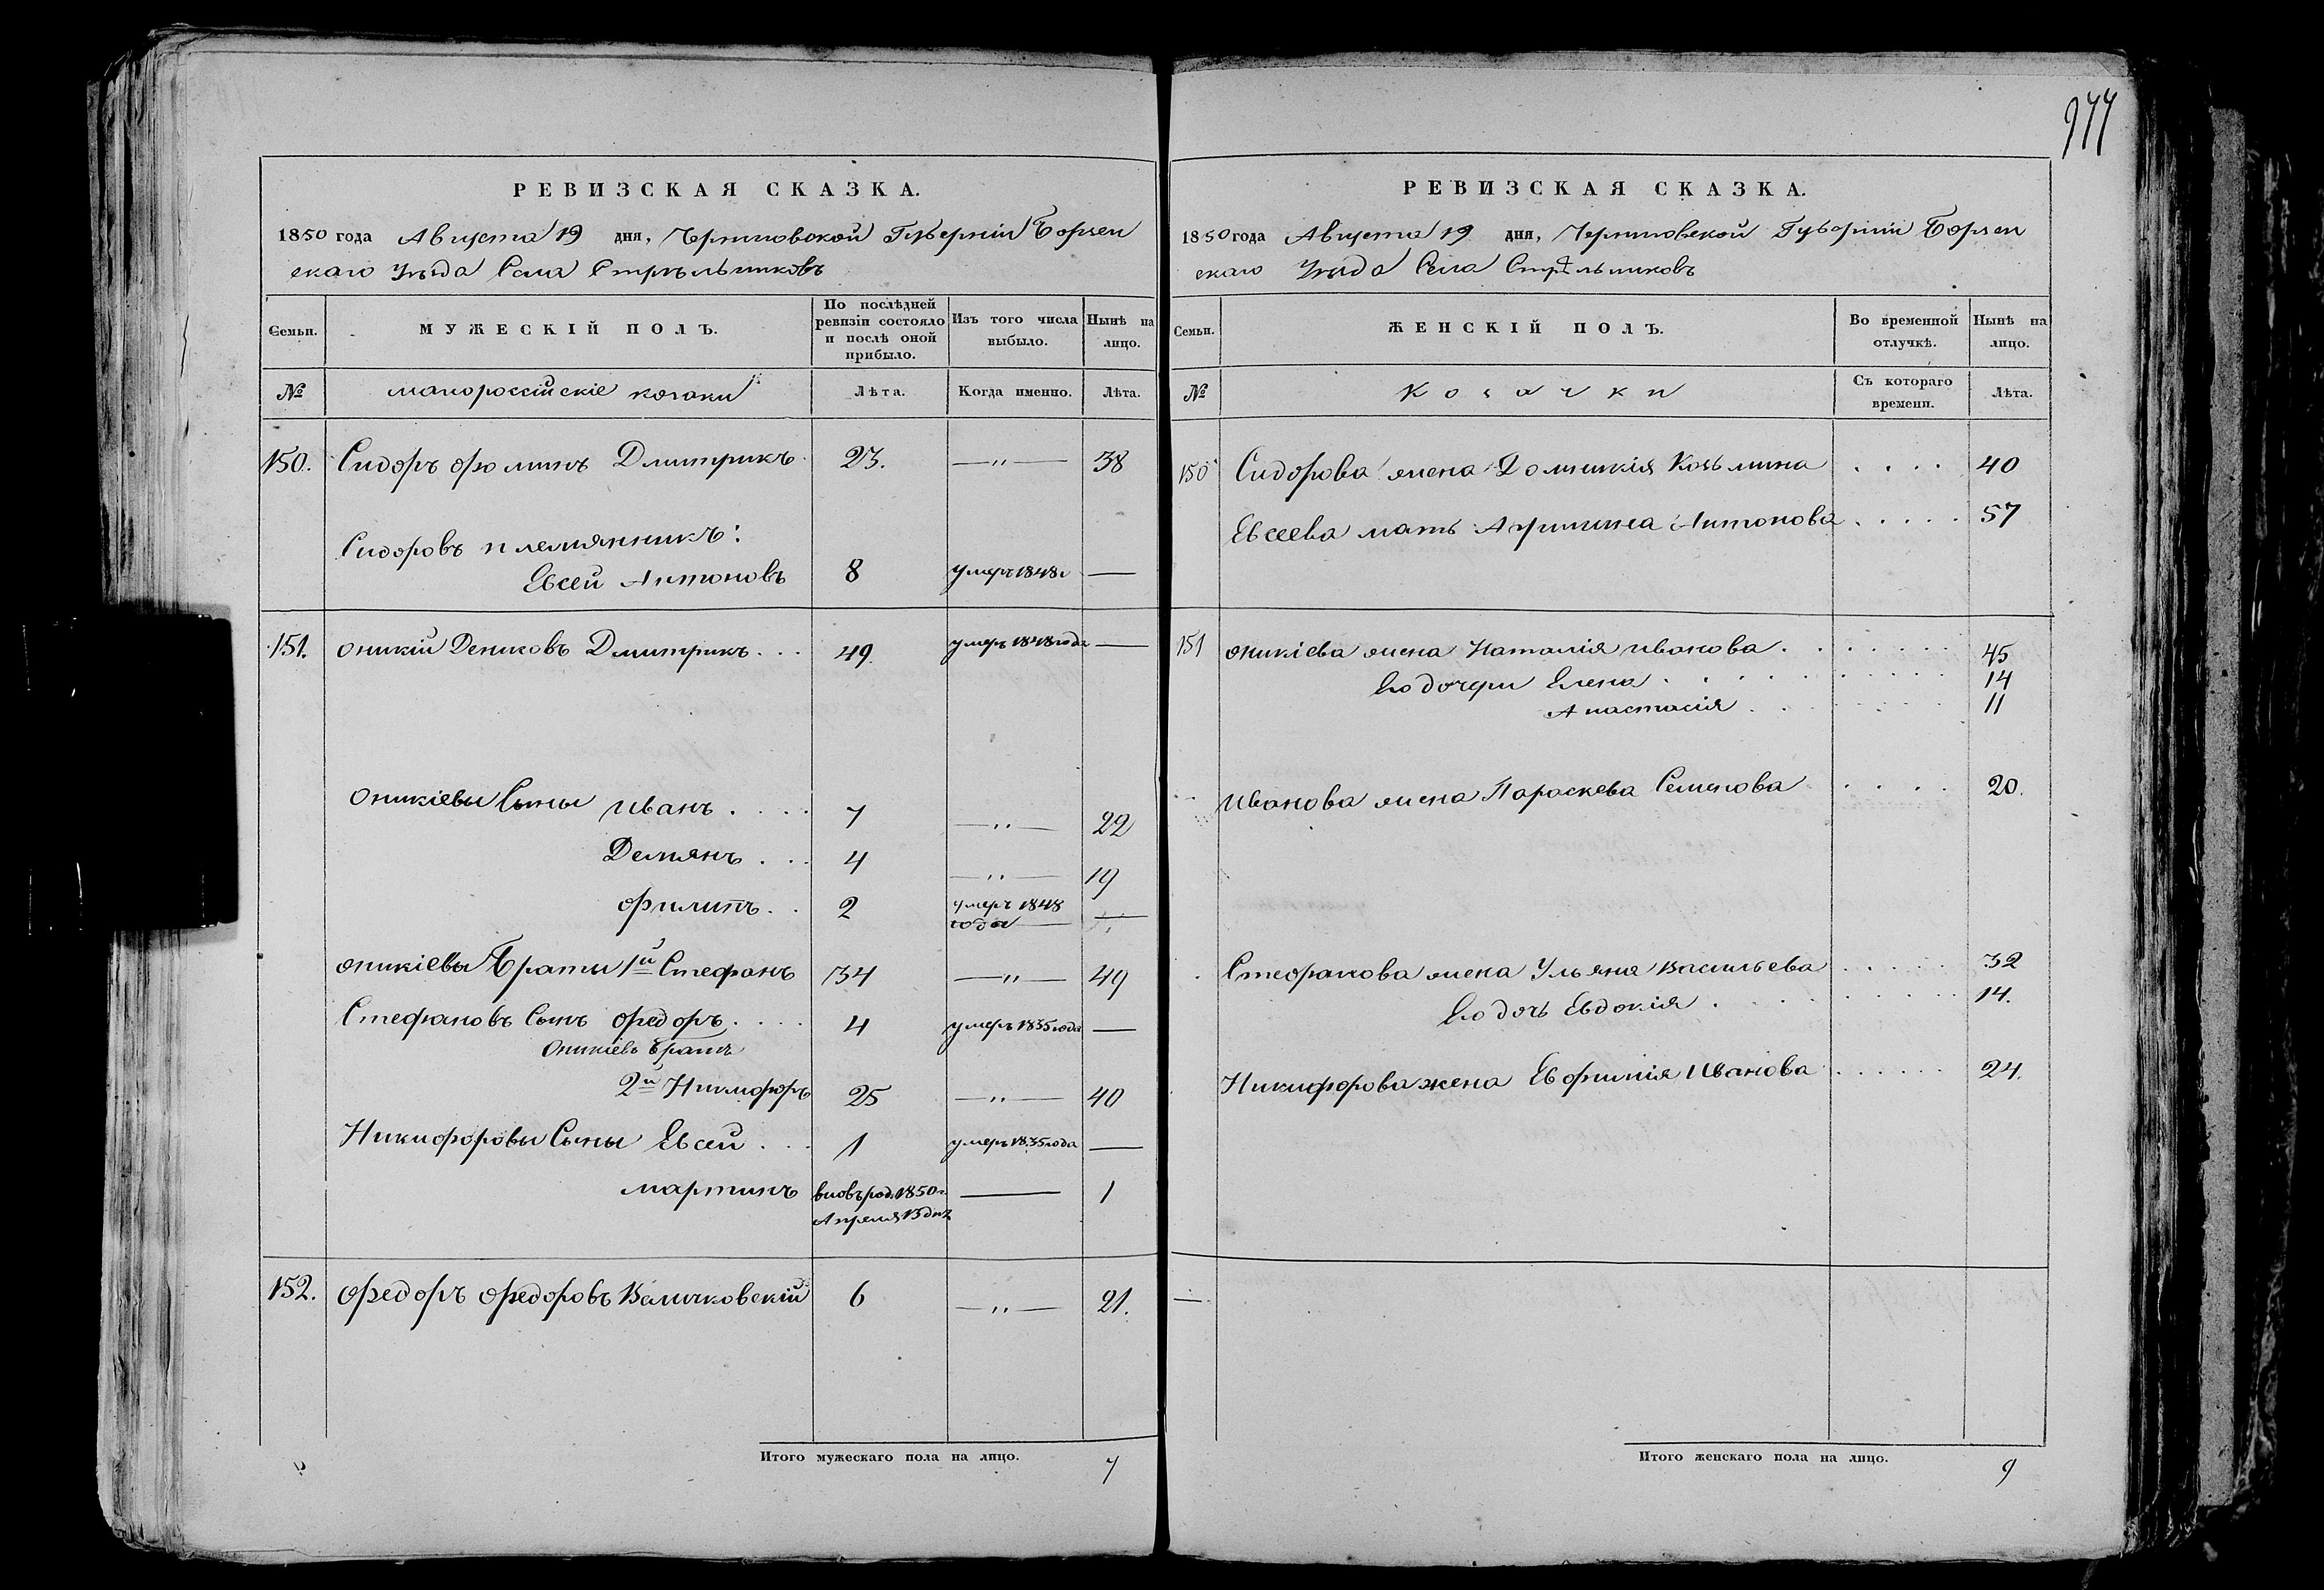 977
РЕВИЗСКАЯ СКАЗКА.
1850 года Августа 19 дня, Черниговской Губерніи Борзен
скаго Уѣзда Села Стрѣльниковъ
Семьи.
МУЖЕСКІЙ ПОЛЪ.
По послѣдней ревизіи состояло и послѣ оной прибыло.
Изъ того числа выбыло.
Нынѣ на лицо.
№ малороссійскіе козаки Лѣта. Когда именно. Лѣта.
150. Сидоръ Фоминъ Дмитрикъ 23. —"— 38
Сидоровъ племянникъ:
Евсей Антоновъ 8 умеръ 1848г —
151. Оникій Денисовъ Дмитрикъ . . . 49. умеръ 1848 года —
Оникіевы Сыны Иванъ . . . . 7 —"— 22
Демянъ . . . 4 —"— 19
Филипъ . . 2 умеръ 1848 —
года
Оникіевы Браты 1й Стефанъ 34 —"— 49
Стефановъ Сынъ Федоръ . . . . 4 умеръ 1835 года —
Оникіевъ братъ
2й Никифоръ 25 —"— 40
Никифоровы Сыны Евсей . . . 1 умеръ 1835 года —
мартинъ вновь род. 1850 г. — 1
Апреля 13 дня
152. Федоръ Федоровъ Величковскій 6 —"— 21.
Итого мужескаго пола на лицо. 7
РЕВИЗСКАЯ СКАЗКА.
1850 года Августа 19 дня, Черниговской Губерніи Борзен
скаго Уѣзда Села Стрѣльниковъ
Семьи.
ЖЕНСКІЙ ПОЛЪ.
Во временной отлучкѣ.
Нынѣ на лицо.
№ Козачки Съ котораго времени. Лѣта.
150 Сидорова жена Домникія Козьмина . . . . 40
Евсеева мать Агрипина Антонова . . . . . 57
151 Оникіева жена Наталія Иванова . . . . . . . 45
Его дочери Елена . . . . . . . . . . 14
Анастасія . . . . . . . 11
Иванова жена Параскева Семенова . . . . 20.
Стефанова жена Ульяна Васильева . . . . . 32
Его дочь Евдокія . . . . . . . . . 14.
Никифорова жена Евфимія Иванова . . . . . . 24.
—
Итого женскаго пола на лицо. 9